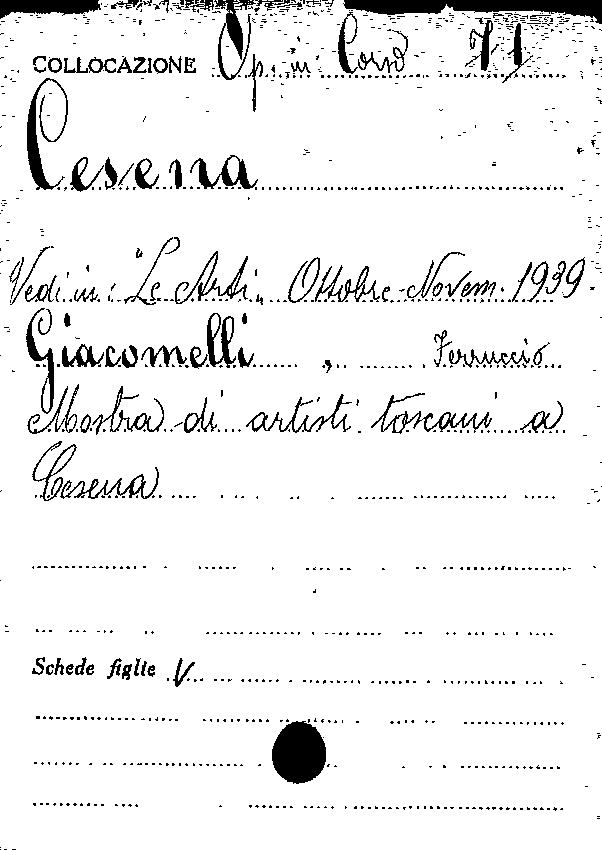 COLLOCAZIONE Op. in Corso 71
Cesena
Vedi in: "Le Arti„ Ottobre-Novem. 1939.
Giacomelli, Ferruccio
Mostra di artisti toscani a
Cesena
Schede figlie V